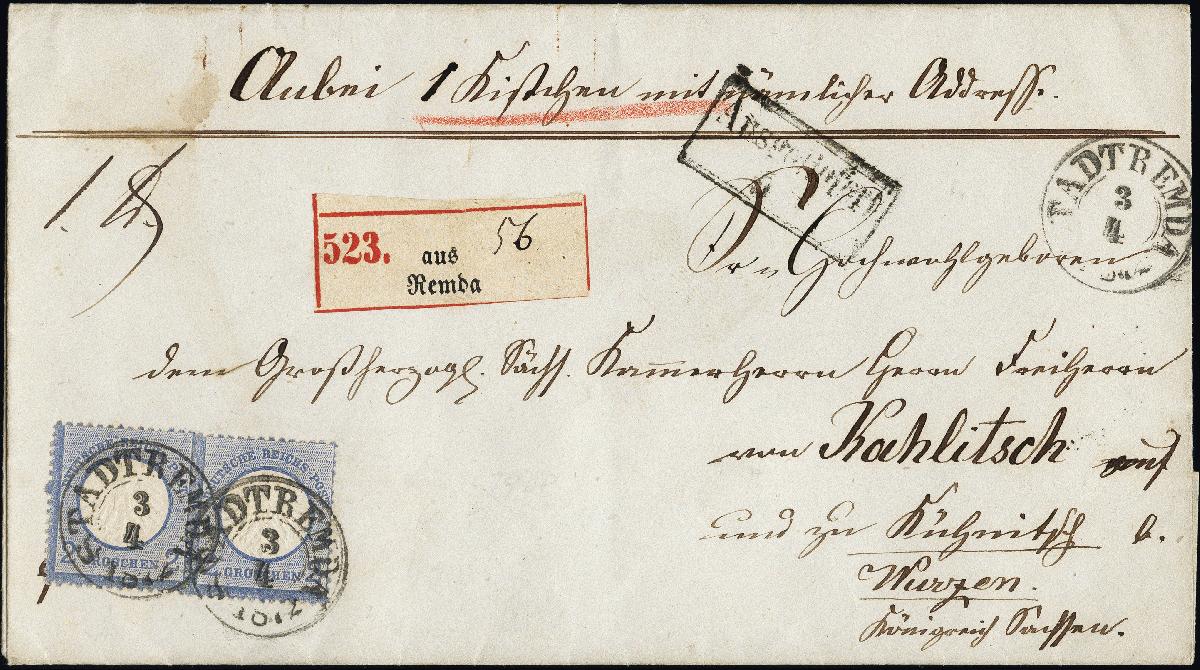 Anbei 1 Kistchen mit nämlicher Address.
STADTREMDA
3
4
1872
523. aus 56
Remda
Hochwohlgeboren
dem Großherzogl. Sächs. Kammerherrn Herrn Freiherrn
von Kahlitsch auf
und zu Kühnitsch b.
Wurzen.
Königreich Sachsen.
DEUTSCHE REICHS-POST
2 GROSCHEN 2
STADTREMDA
3
4
1872
DEUTSCHE REICHS-POST
2 GROSCHEN
STADTREMDA
3
4
1872